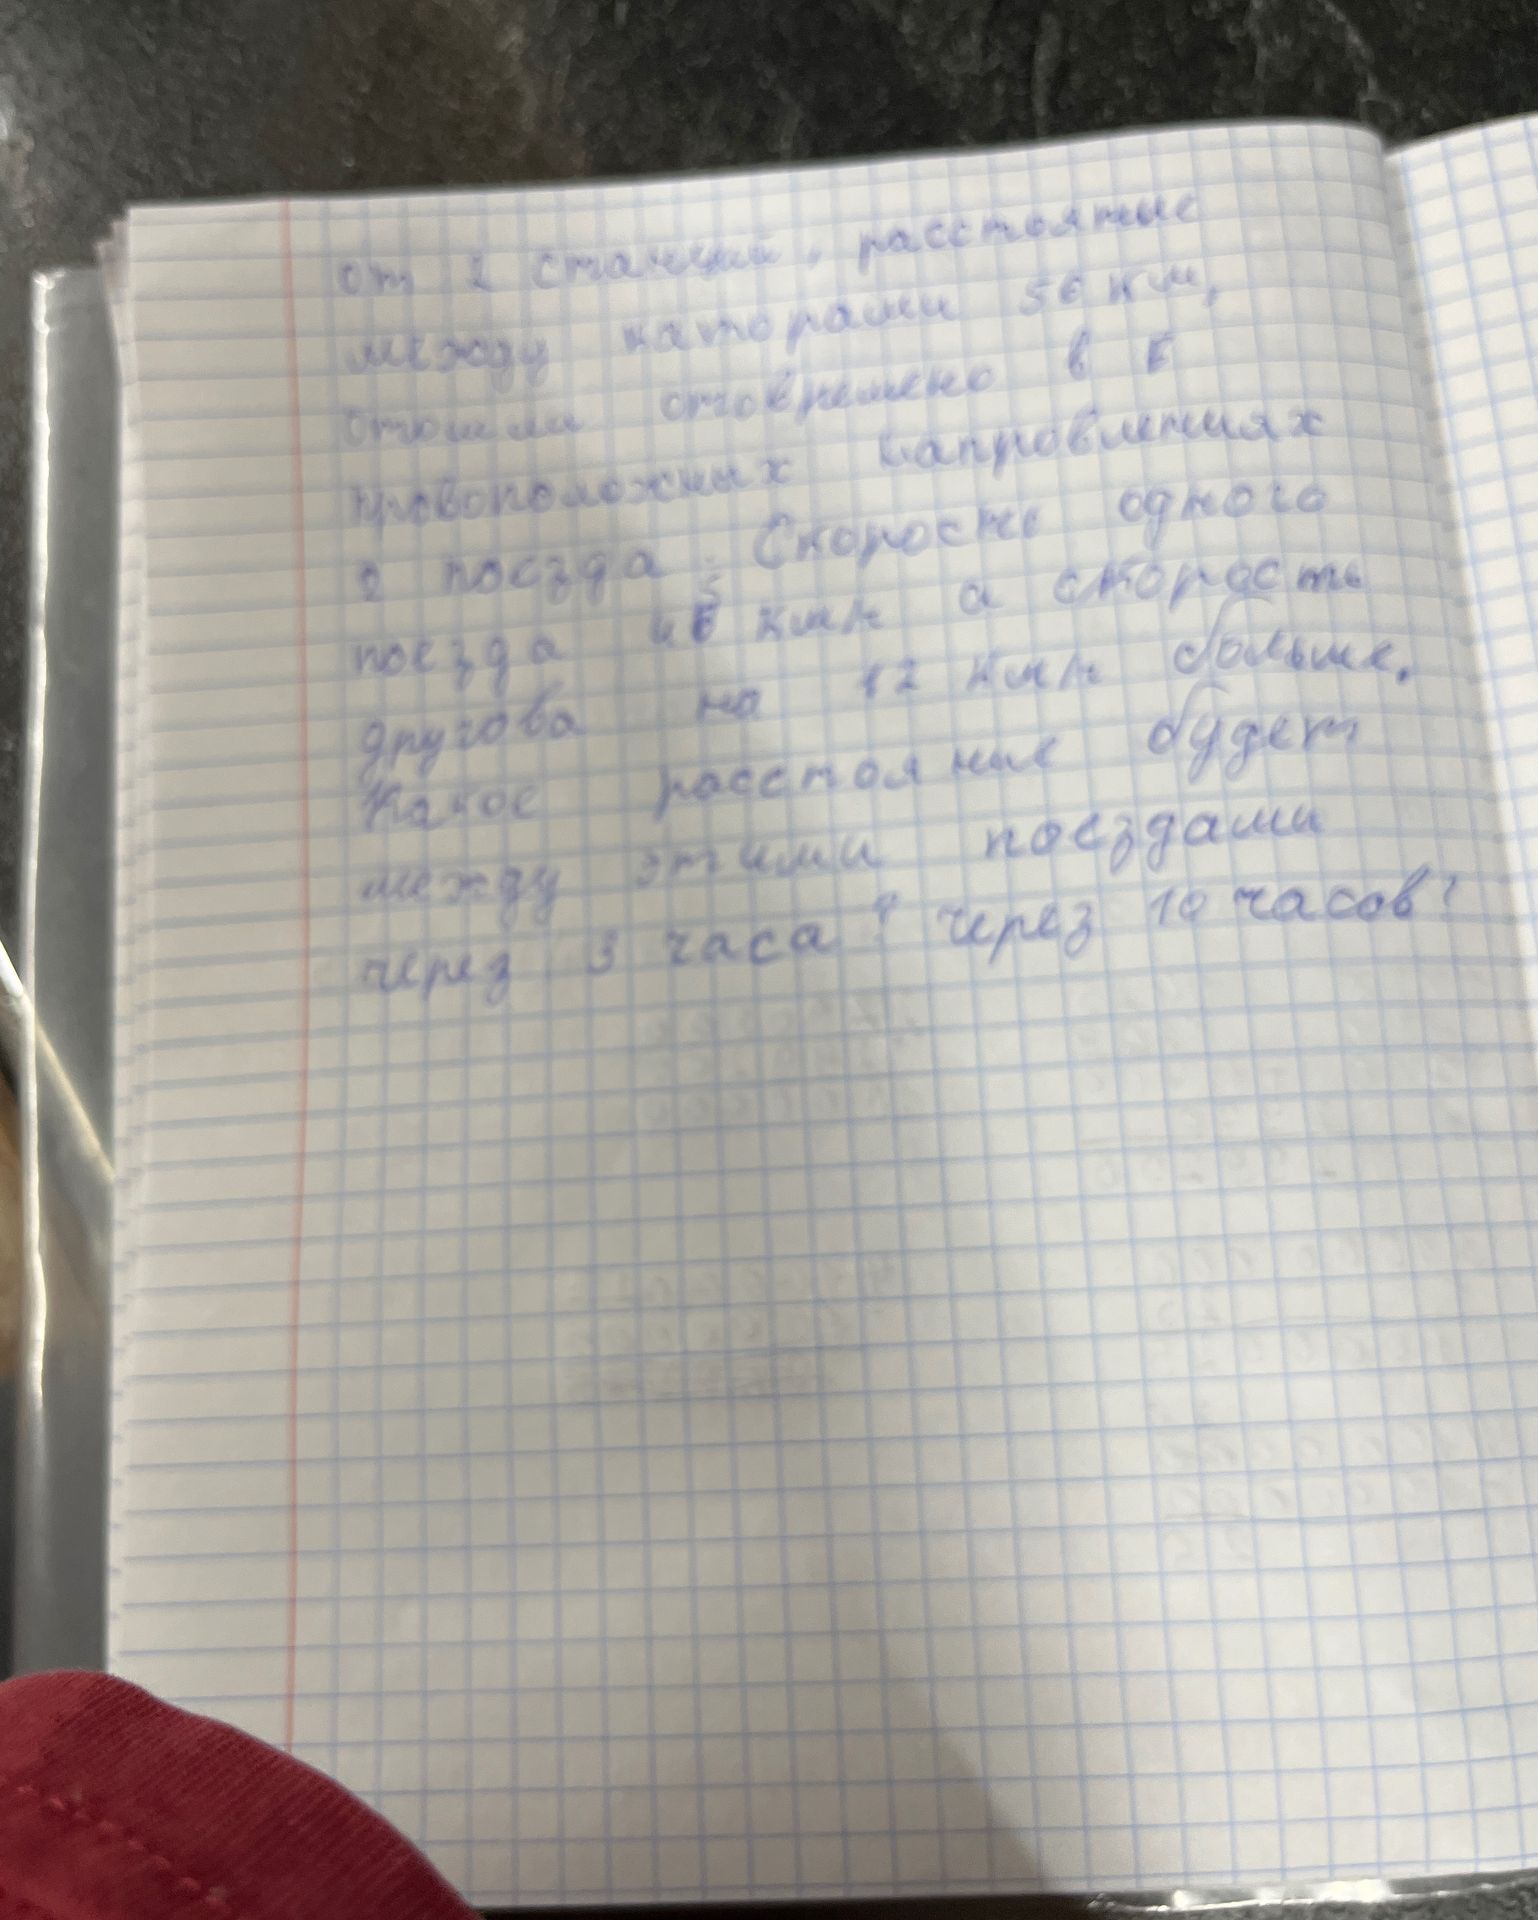 от 2 станций, расстояние
между каторами 56 км,
отошли в
провоположных напровлениях
2 поезда. Скорость одного
поезда км/ч а скорость
другова на 12 км/ч больше.
Какое расстояние будет
между этими поездами
через 3 часа? через 10 часов?